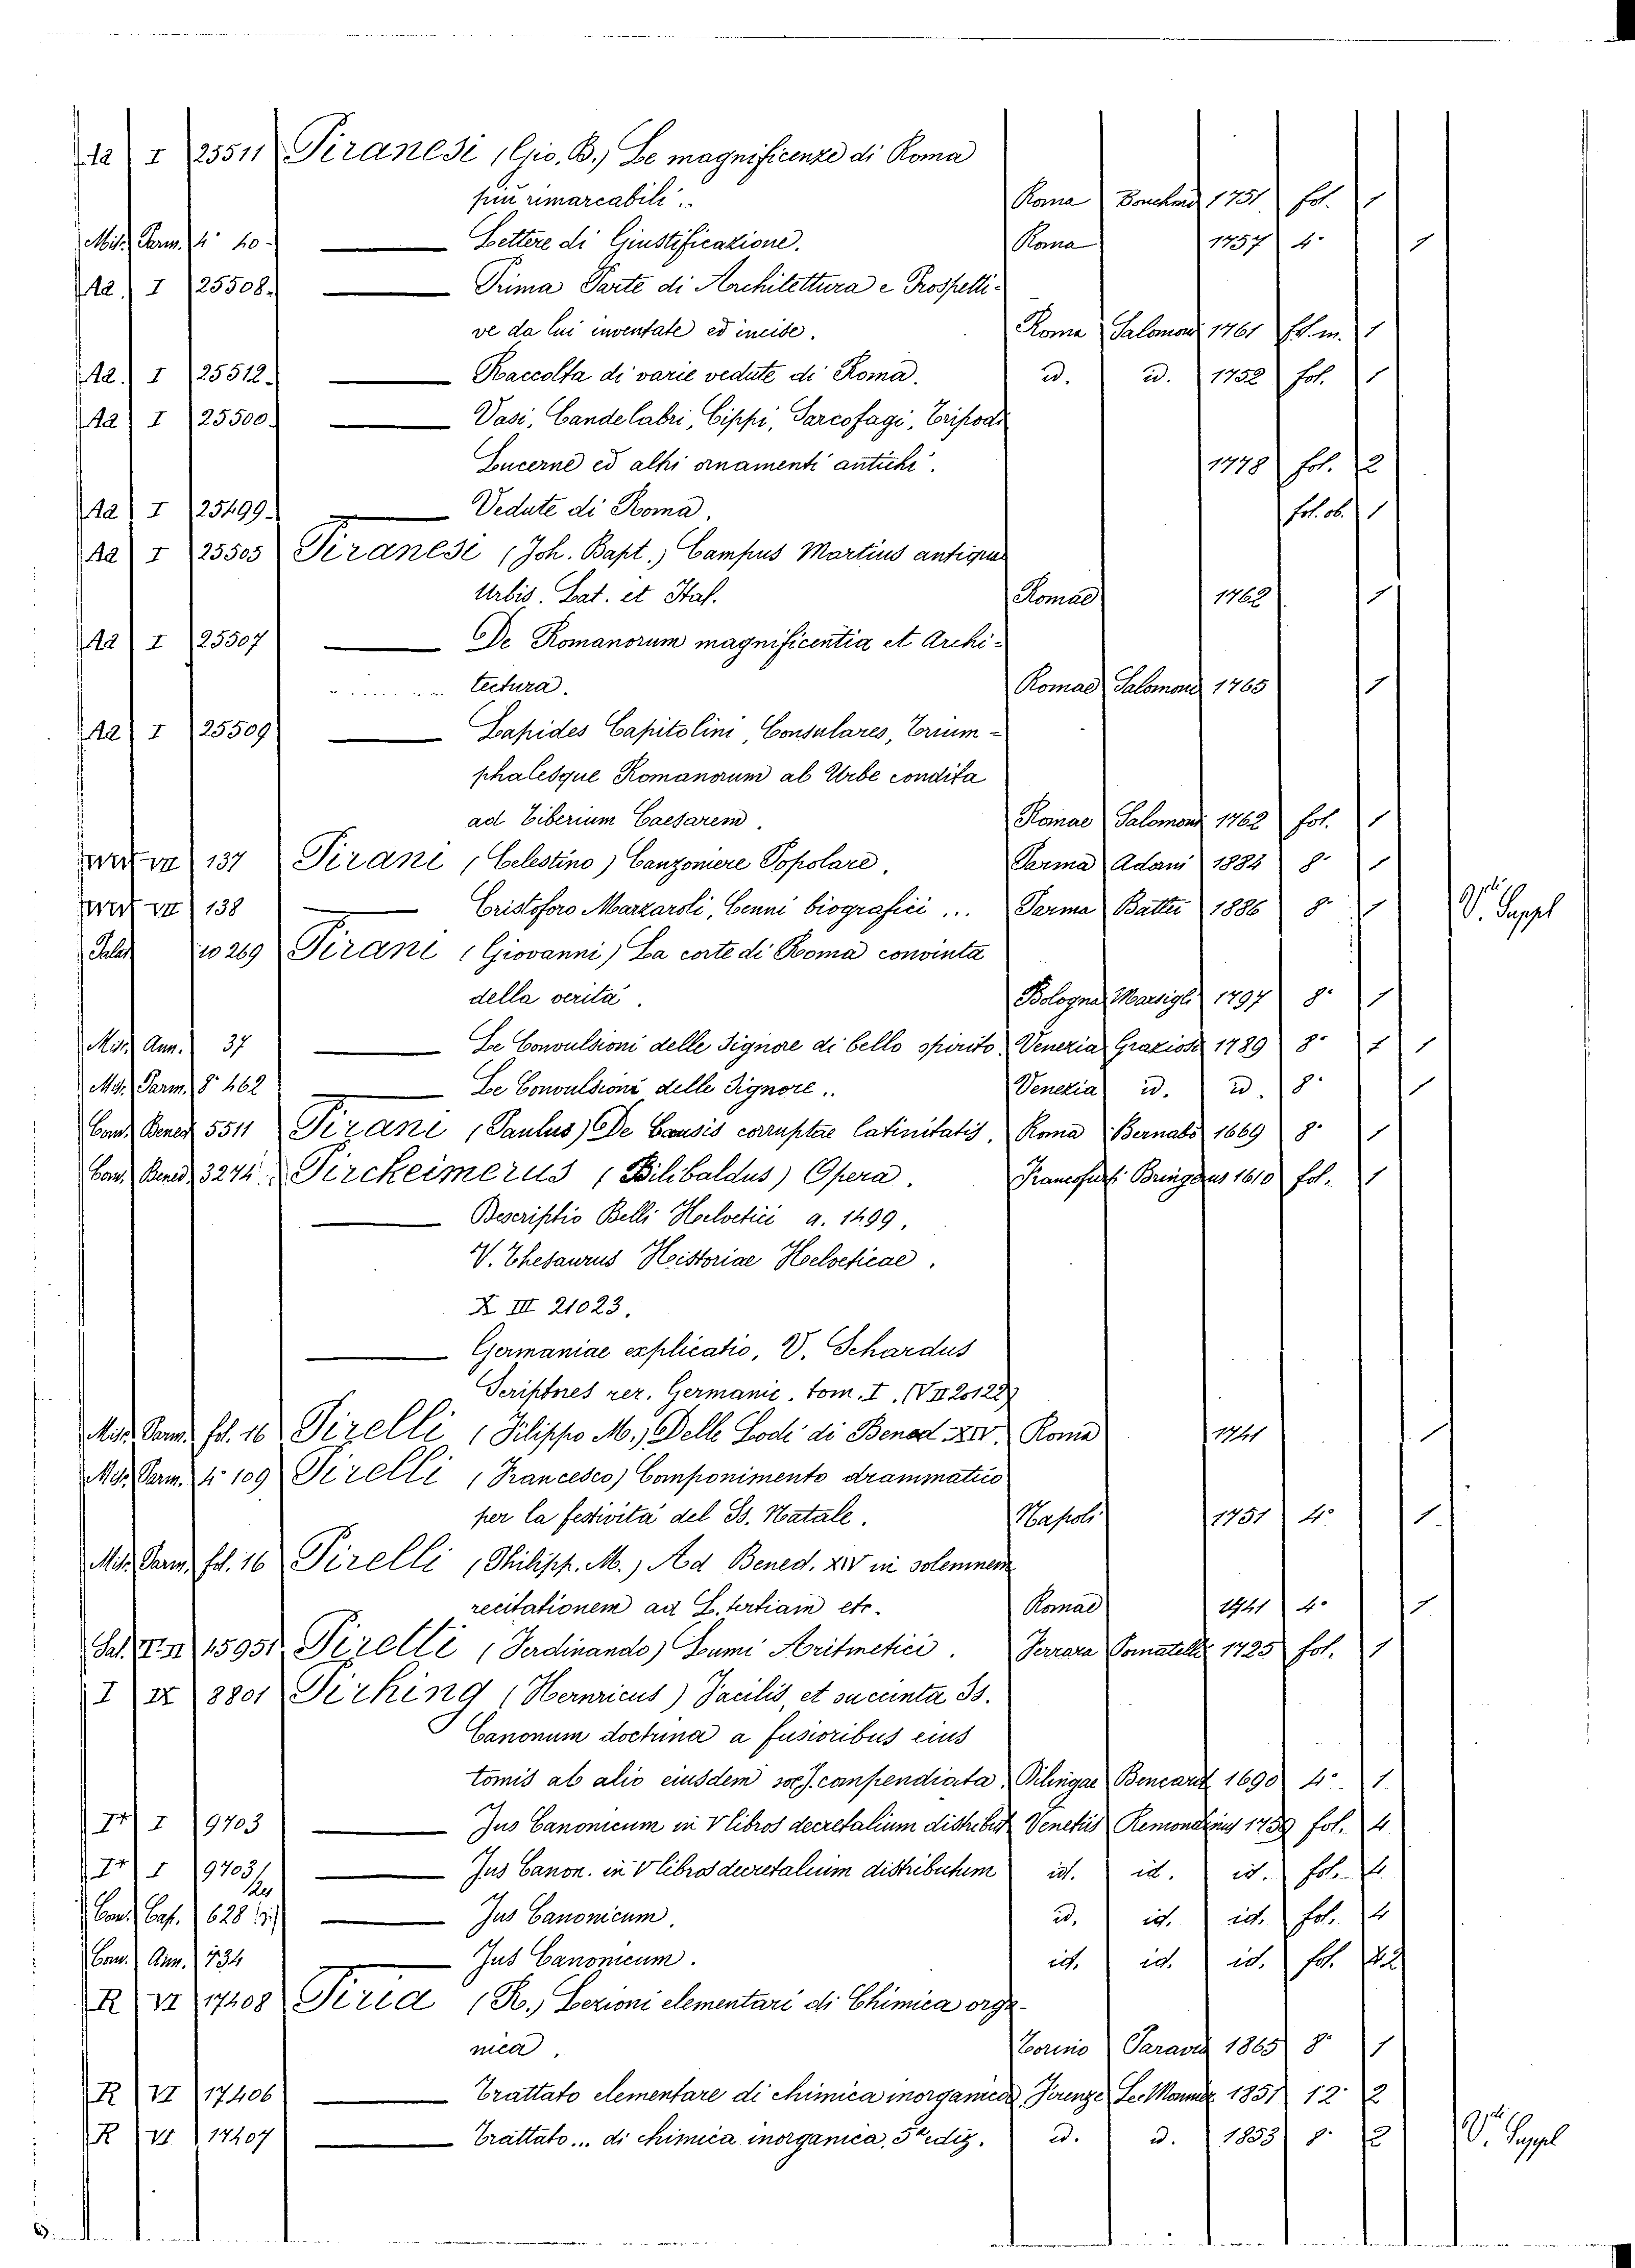 Aa I 25511 Piranesi (Gio. B.) Le magnificenze di Roma
più rimarcabili.. Roma Bouchard 1751 fol. 1
Misc. Parm. 4° 40 — Lettere di Giustificazione. Roma 1757 4° 1
Aa. I 25508. — Prima Parte di Architettura e Prospetti-
ve da lui inventate ed incise. Roma Salomoni 1761 fol. m. 1
Aa. I 25512. — Raccolta di varie vedute di Roma. id. id. 1752 fol. 1
Aa I 25500. — Vasi, Candelabri, Cippi, Sarcofagi, Tripodi
Lucerne ed altri ornamenti antichi. 1778 fol. 2
Aa I 25499. — Vedute di Roma. fol. ob. 1
Aa I 25505 Piranesi (Joh. Bapt.) Campus Martius antiquae
Urbis. Lat. et Ital. Romae 1762 1
Aa I 25507 — De Romanorum magnificentia et Archi-
tectura. Romae Salomoni 1765 1
Aa I 25509 — Lapides Capitolini, Consulares, Trium-
phalesque Romanorum ab Urbe condita
ad Tiberium Caesarem. Romae Salomoni 1762 fol. 1
VII 137 Pirani (Celestino) Canzoniere Popolare. Parma Adami 1884 8° 1
VII 138 — Cristoforo Marzaroli, Cenni biografici ... Parma Battei 1886 8° 1 V. Suppl
Palat 10269 Pirani (Giovanni) La corte di Roma convinta
della verità. Bologna Marsigli 1797 8° 1
Misc. Ann. 37 — Le Convulsioni delle Signore di bello spirito. Venezia Graziosi 1789 8° 1 1
Misc. Parm. 8° 462 — Le Convulsioni delle Signore.. Venezia id. id. 8° 1
Conv. Bened. 5511 Pirani (Paulus) De Causis corruptae latinitatis. Roma Bernabò 1669 8° 1
Conv. Bened. 3274. Pirckeimerus (Bilibaldus) Opera. Francofurti Bringerus 1610 fol. 1
— Descriptio Belli Helvetici a. 1499.
V. Thesaurus Historiae Helveticae.
X III 21023.
— Germaniae explicatio, V. Schardus
Scriptores rer. Germanic. tom. I. (V II 20122)
Misc. Parm. fol. 16 Pirelli (Filippo M.) Delle Lodi di Bened. XIV. Roma 1741 1
Misc. Parm. 4° 109 Pirelli (Francesco) Componimento drammatico
per la festività del SS. Natale. Napoli 1751 4° 1
Misc. Parm. fol. 16 Pirelli (Philipp. M.) Ad Bened. XIV in solemnem
recitationem ad L. tertiam etc. Romae 1741 4° 1
Sal. 15951 Pirelli (Ferdinando) Lumi Aritmetici. Ferrara Pomatelli 1725 fol. 1
I IX 8801 Pirhing (Henricus) Facilis, et succinta SS.
Canonum doctrina a fusioribus eius
tomis ab alio eiusdem soc. J. compendiata. Dilingae Bencard 1690 4° 1
I 9703 — Jus Canonicum in V libros decretalium distribut. Venetiis Remondinus 1759 fol. 4
I 9703/bis — Jus Canon. in V libros decretalium distributum id. id. id. fol. 4
Conv. Cap. 628 — Jus Canonicum. id. id. id. fol. 4
Conv. Ann. 734 — Jus Canonicum. id. id. id. fol.
R VI 17408 Piria (R.) Lezioni elementari di Chimica orga-
nica. Torino Paravia 1865 8° 1
R VI 17406 — Trattato elementare di chimica inorganica. Firenze Le Monnier 1851 12° 2
R VI 17407 — Trattato... di chimica inorganica, 3a ediz. id. id. 1853 8° 2 V. Suppl